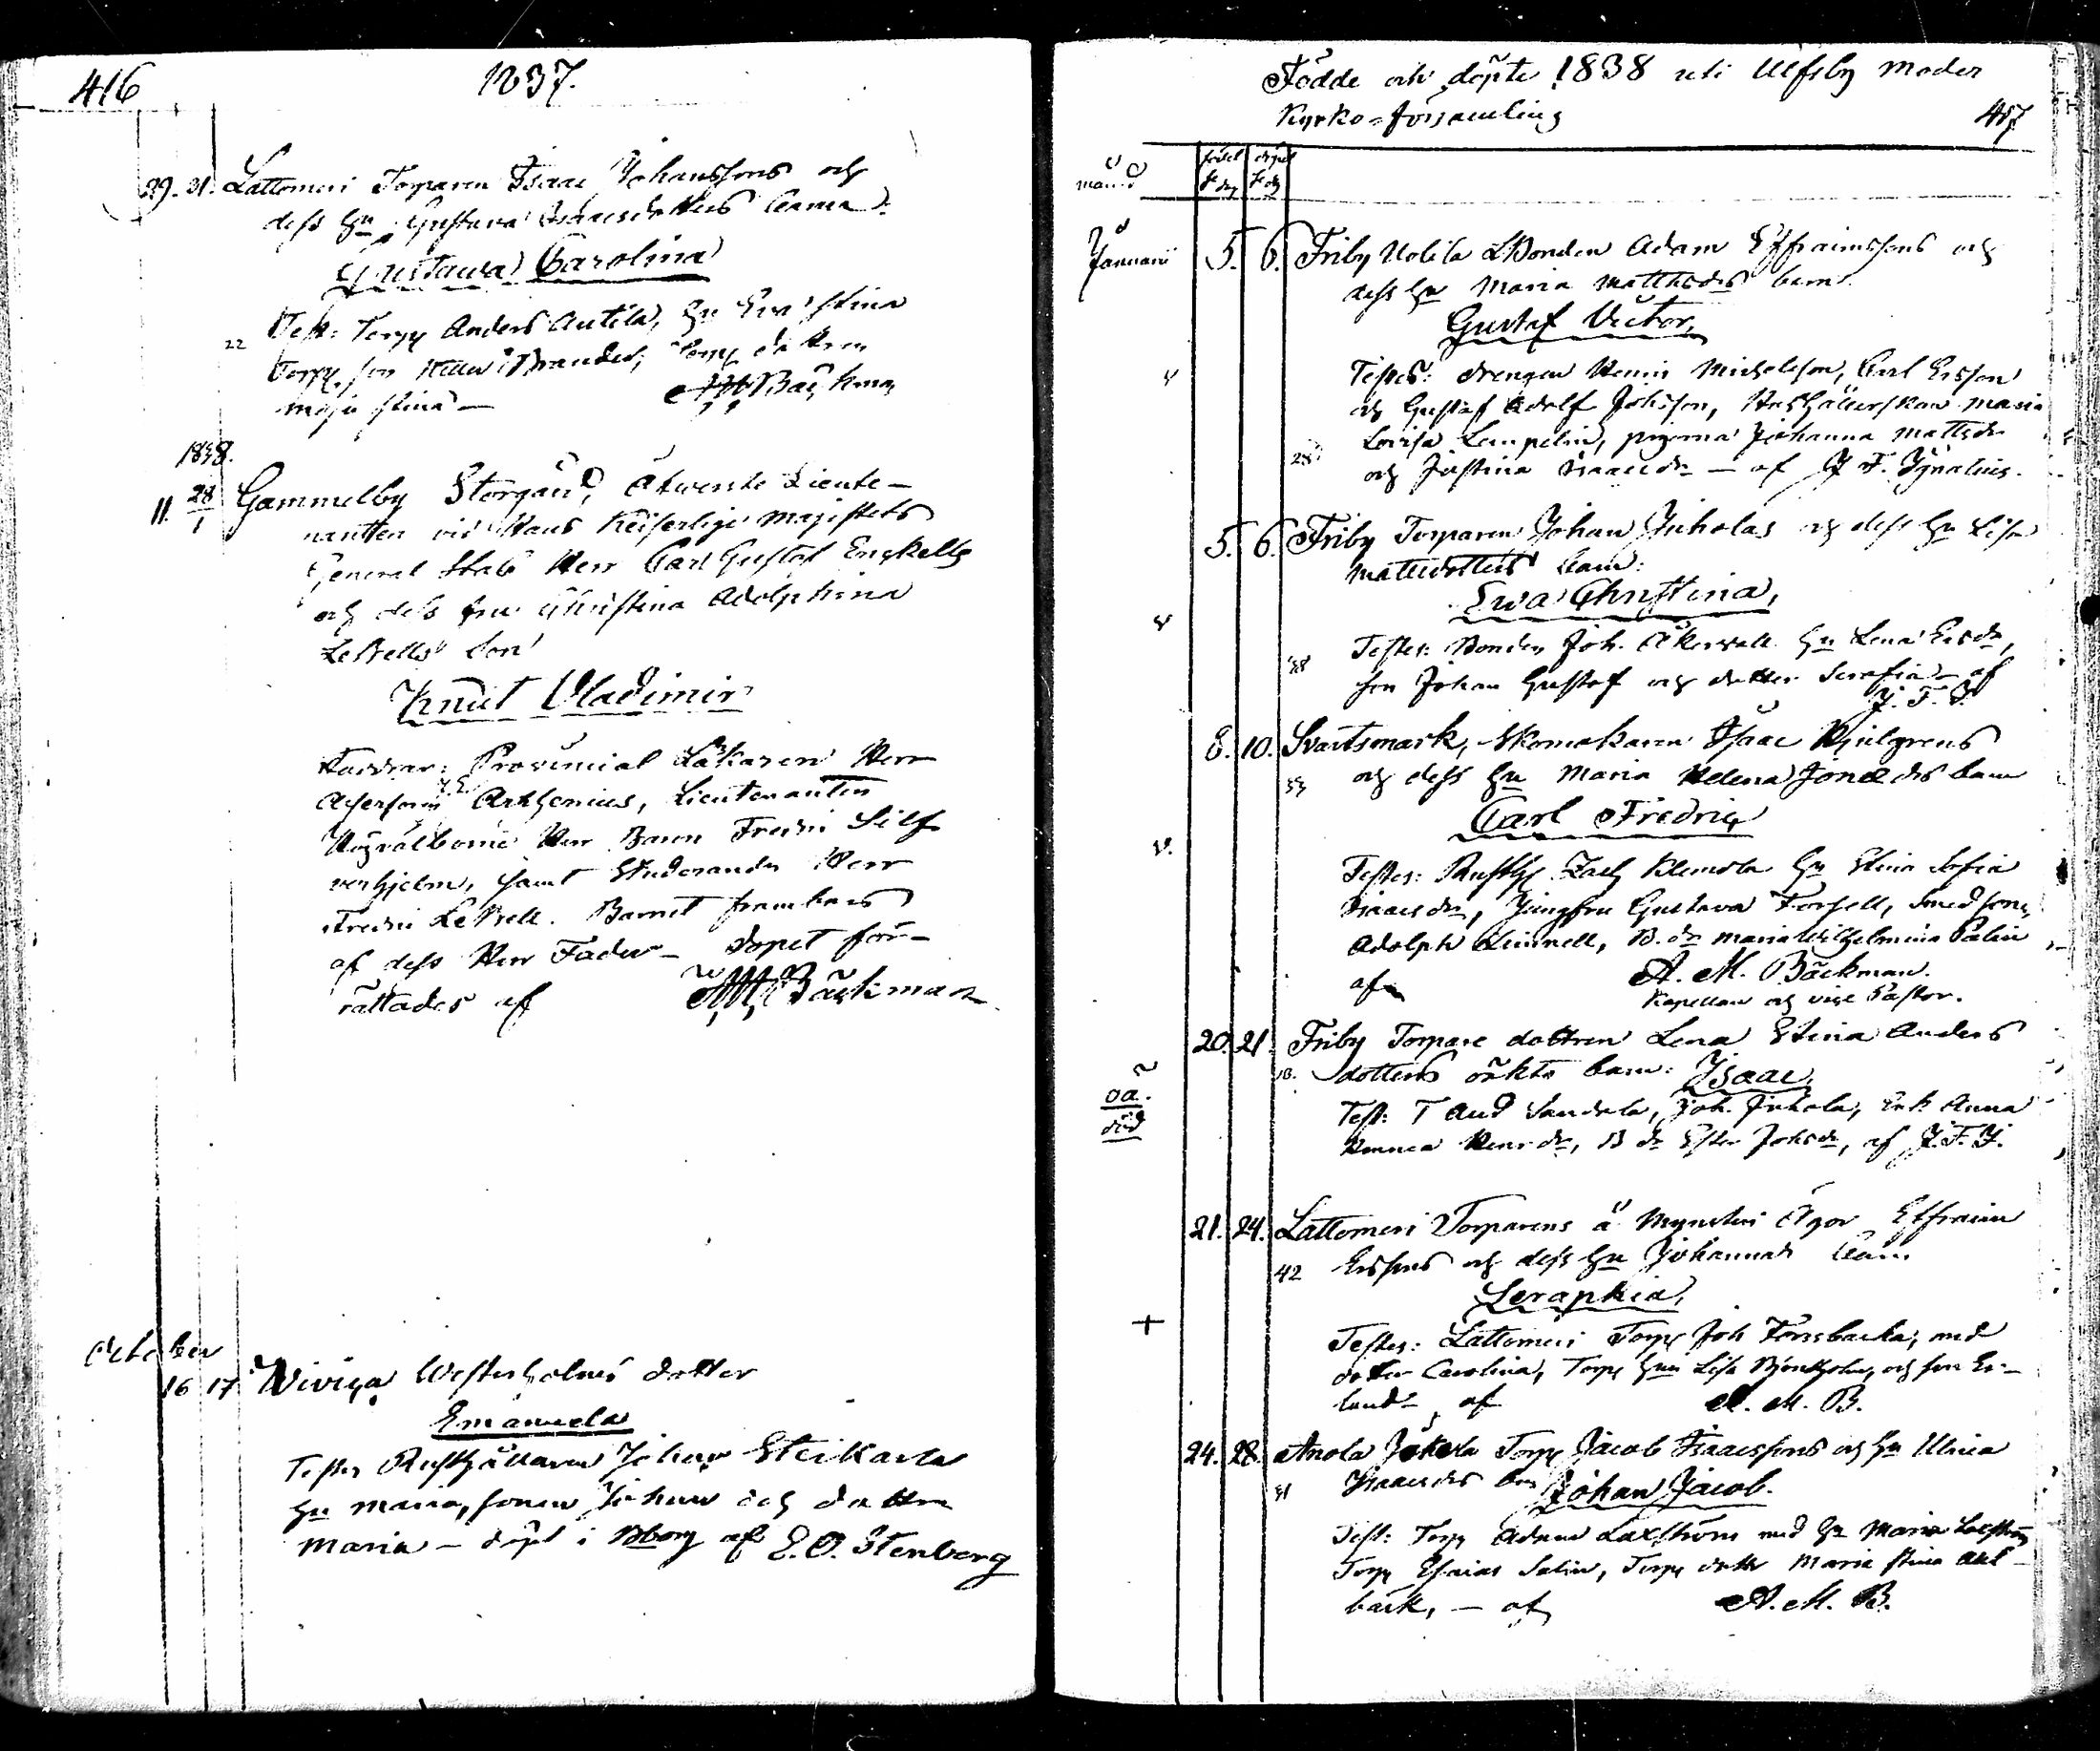 416
1837.
29. 31. Lattomeri Torparen Isaac Johanssons och
dess hu Gustava Isaacsdotters barn
Gustava Carolina
22 Test: Torp Anders Antila, hu Eva Stina
Torp. son Brander, Torp dottren
Maja Stina — Bäckman
1838.
11. 28/1 Gammelby Storgård, Lieute-
nanten vid Hans Keiserlige Majestets
General Stab Herr Carl Gustaf Enckells
och dess fru Christina Adolphina
LeBells son
Knut Vladimir
Faddrar: Provincial Läkaren Herr
Arrhenius, Lieutenanten
Högvälborne Herr Baron Fredric Silf
verhjelm, samt Studeranden Herr
Fredric LeBell. Barnet frambars
af dess Herr Fader — Dopet för-
rättades af Bäckman
October
16 17 Wiviga Westerholms dotter
Emanuela
Testes Rusthållaren Johan Steikarla
hu Maria, sonen Johan och dottren
Maria — döpt i Bborg af E. O. Stenberg
Födde och döpte 1838 uti Ulfsby Moder
Kyrko=församling
417
månad födel se dag
Januari 5. 6. Friby Uotila Bonden Adam Effraimssons och
dess hu Maria Matthsdrs barn
Gustaf Victor,
Testes: drengen Henric Michelsson, Carl Ersson
och Gustaf Adolf Johsson, Hushållerskan Maria
Lovisa Lempelin, pigorna Johanna Mattsdr
28 och Justina Isaacsdr — af J F. Ignatius.
5. 6. Friby Torparen Johan Juholas och dess hu Lisa
Mattsdotters barn:
Ewa Christina,
Testes: Bonden Joh. Åkervall hu Lena Ersdr,
38 son Johan Gustaf och dotter Serafia — af
J. F. I.
8. 10. Svartsmark, Skomakaren Isaac Kjulgrens
33 och dess hu Maria Helena Jonædrs barn
Carl Fredric
Testes: Rusth Zach Klemola hu Stina Sofia
Isaacsdr, Jungfru Gustava Forsell, Smedsonen
Adolph Linnell, B. dr Maria Wilhelmina Palin
af A. M. Bäckman.
Kapellan och vice Pastor.
20. 21. Friby Torpare dottren Lena Stina Anders
18. dotters oäkta barn: Isaac
oä.
död
Test: T And Sandela, Joh. Juhola, Enk Anna
Henrsdr, B dr Ester Johsdr, af J. F. I.
21. 24. Lattomeri Torparens å Mynsteri Ägor Effraim
42 Erssons och dess hu Johannas barn
Seraphia,
+
Testes: Lattomeri Torp Joh Forsbacka, med
dotter Carolina, Torp hun Lisa Björkholm, och son Er-
land — af A. M. B.
24. 28. Anola Jokela Torp Jacob Isaacssons och hu Ulrica
31 Isaacsdrs barn Johan Jacob.
Test: Torp Adam Laxström med hu Maria Laxström
Torp Esaias Salin, Torp dottr Maria Stina Ahl-
bäck, — af A. M. B.